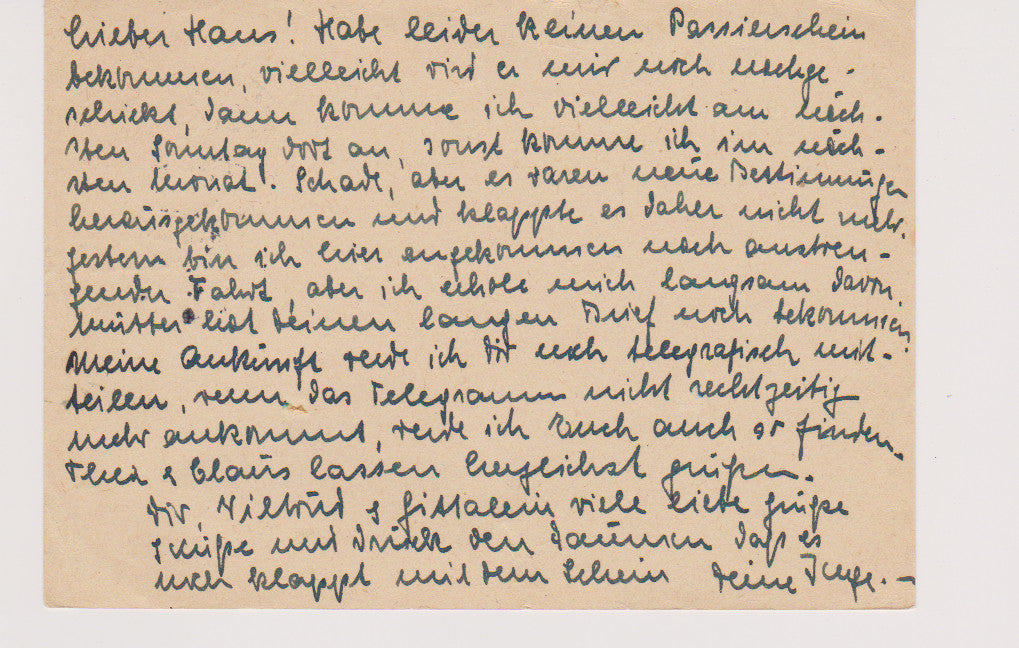 Lieber Hans! Habe leider keinen Passierschein
bekommen, vielleicht wird er mir noch nachge-
schickt, dann komme ich vielleicht am näch-
sten Sonntag dort an, sonst komme ich im näch-
sten Monat! Schade, aber es waren neue Bestimmungen
herausgekommen und klappte es daher nicht mehr.
gestern bin ich hier angekommen nach anstren-
gender Fahrt, aber ich erhole mich langsam davon.
Mutter hat deinen langen Brief noch bekommen.
Meine Ankunft werde ich Dir noch telegrafisch mit-
teilen, wenn das Telegramm nicht rechtzeitig
mehr ankommt, werde ich Euch auch so finden.
Thea & Claus lassen herzlichst grüßen.
Dir, Wiltrud & Gittalein viele liebe Grüße
& Küße und drück den Daumen daß es
noch klappt mit dem Schein Deine Inge.-